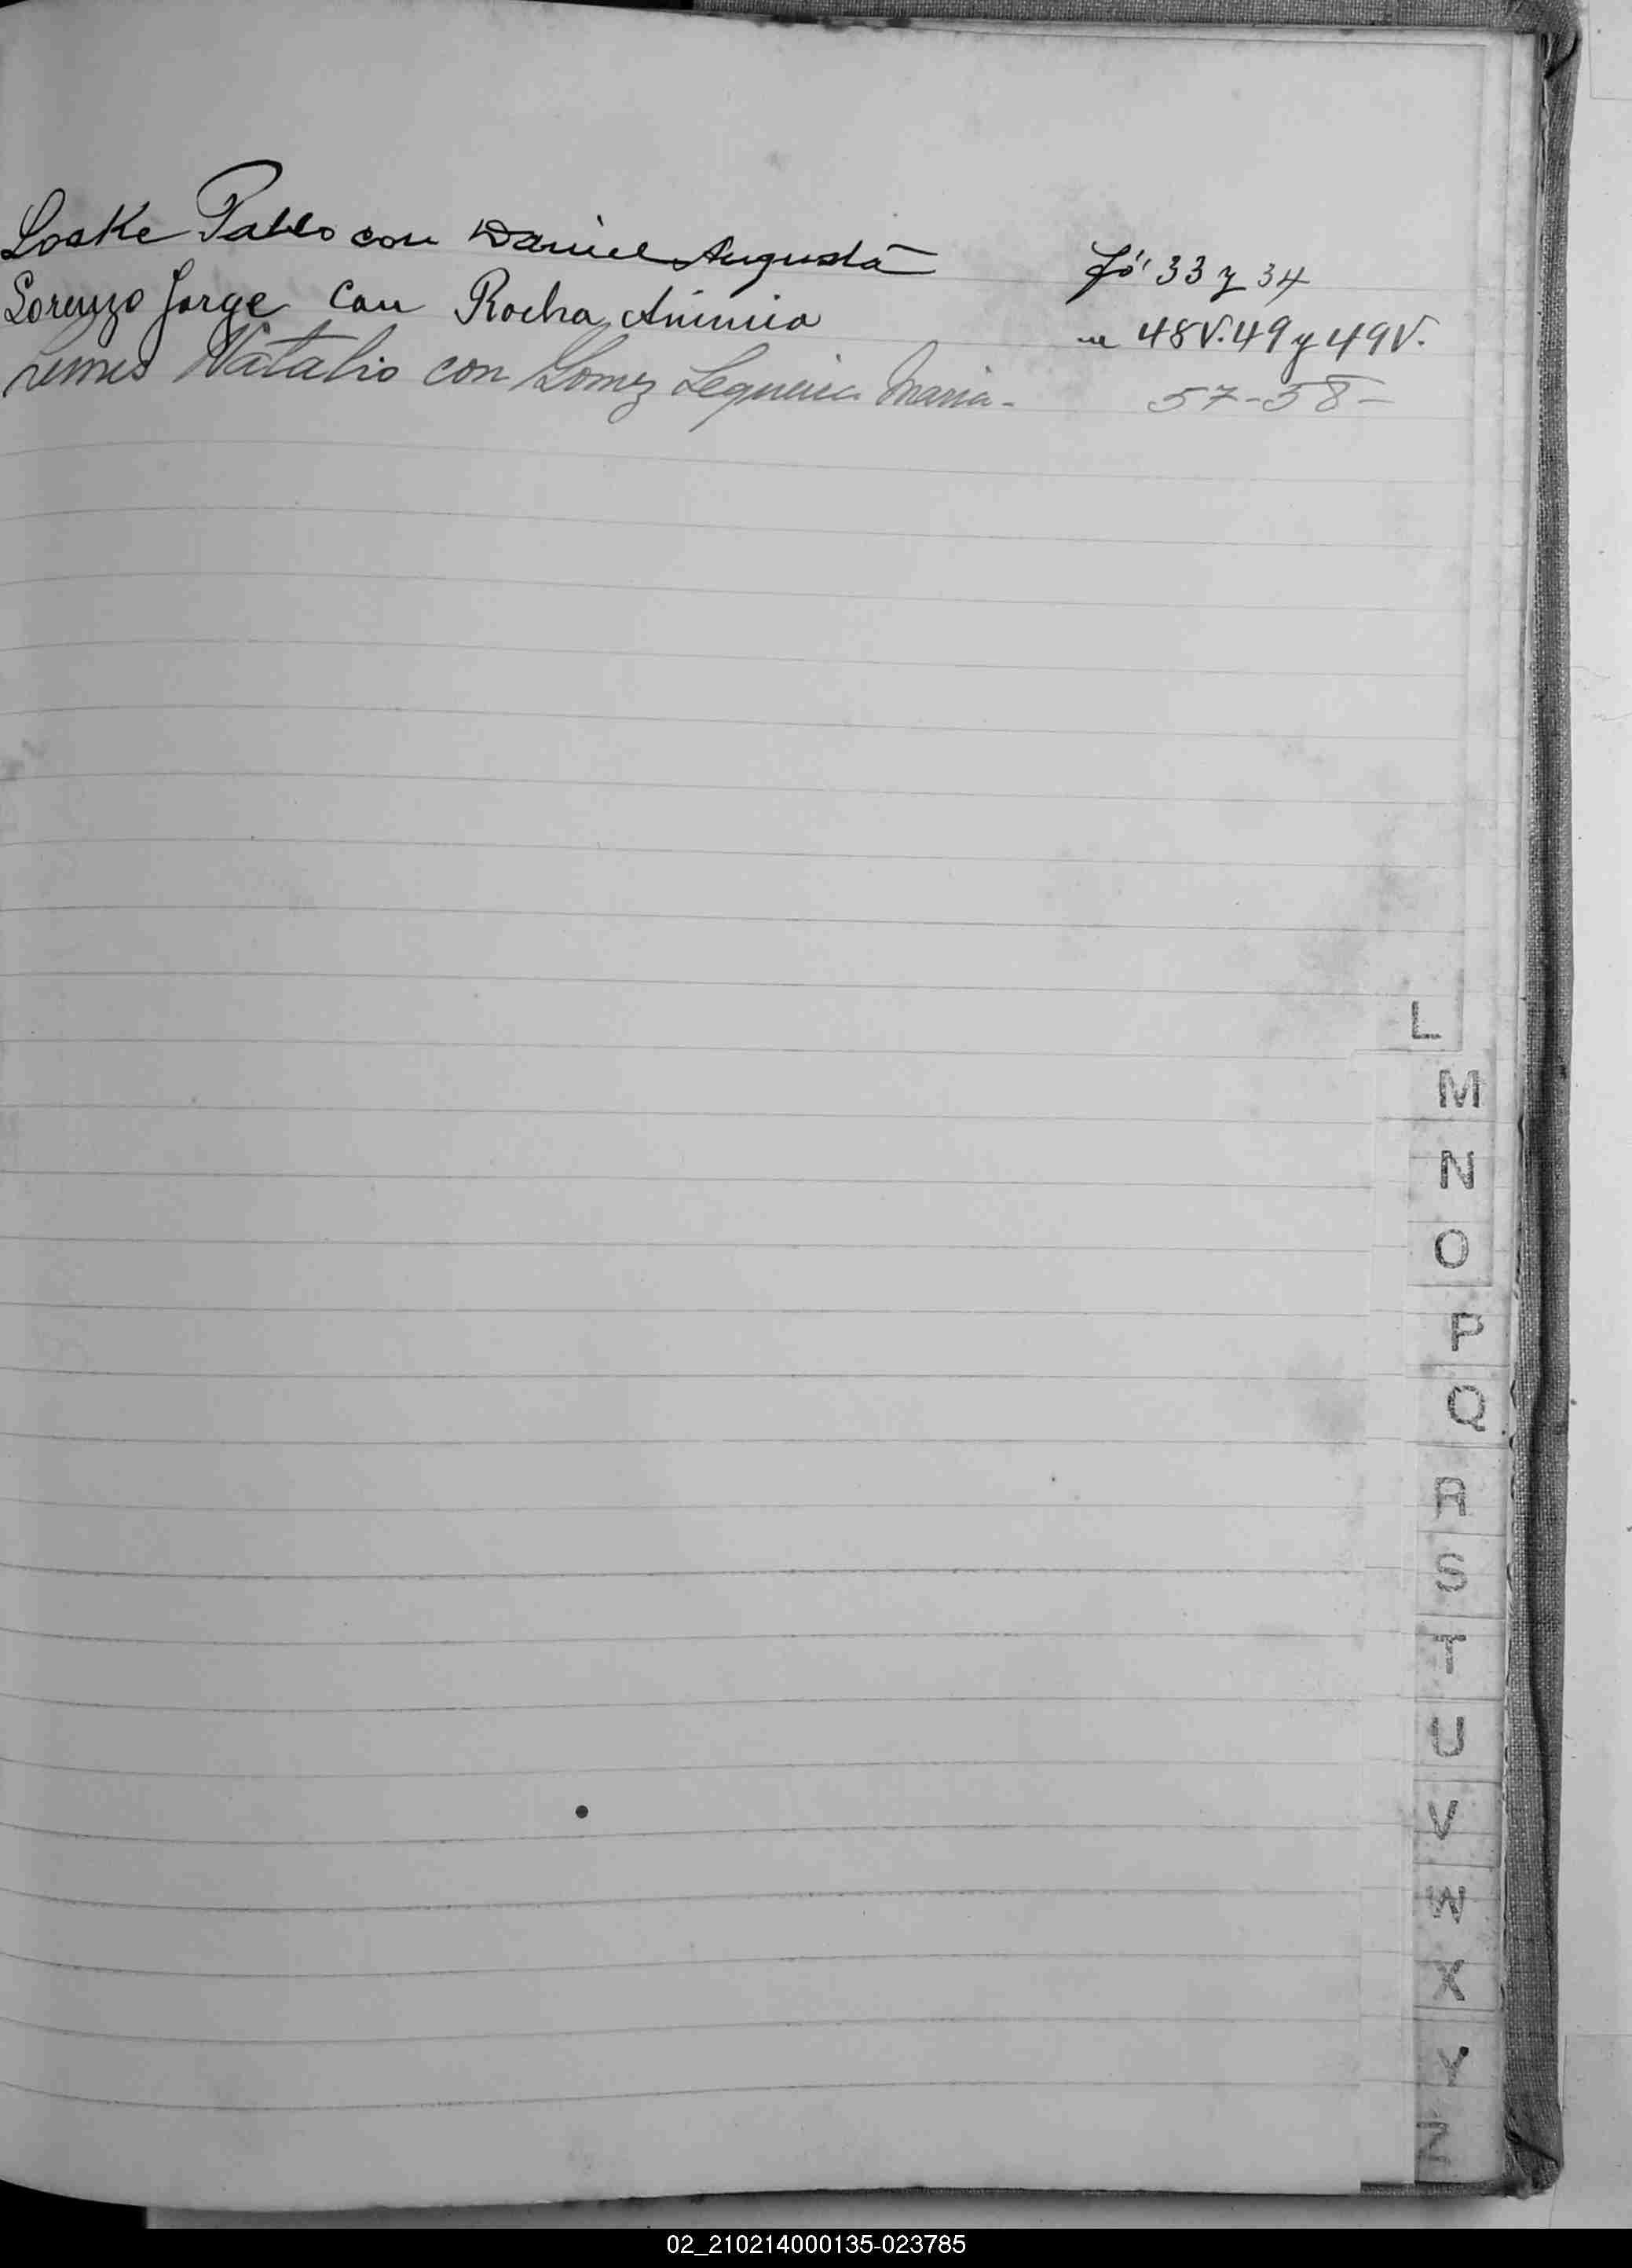 Loske Pablo con Daniel Augusta Fó 33 y 34
Lorenzo Jorge con Rocha 48V.49 y 49V.
Lemes Natalio con Gomez Sequeira Maria- 57-58-
L
M
N
O
P
Q
R
S
T
U
V
W
X
Y
Z
02_210214000135-023785